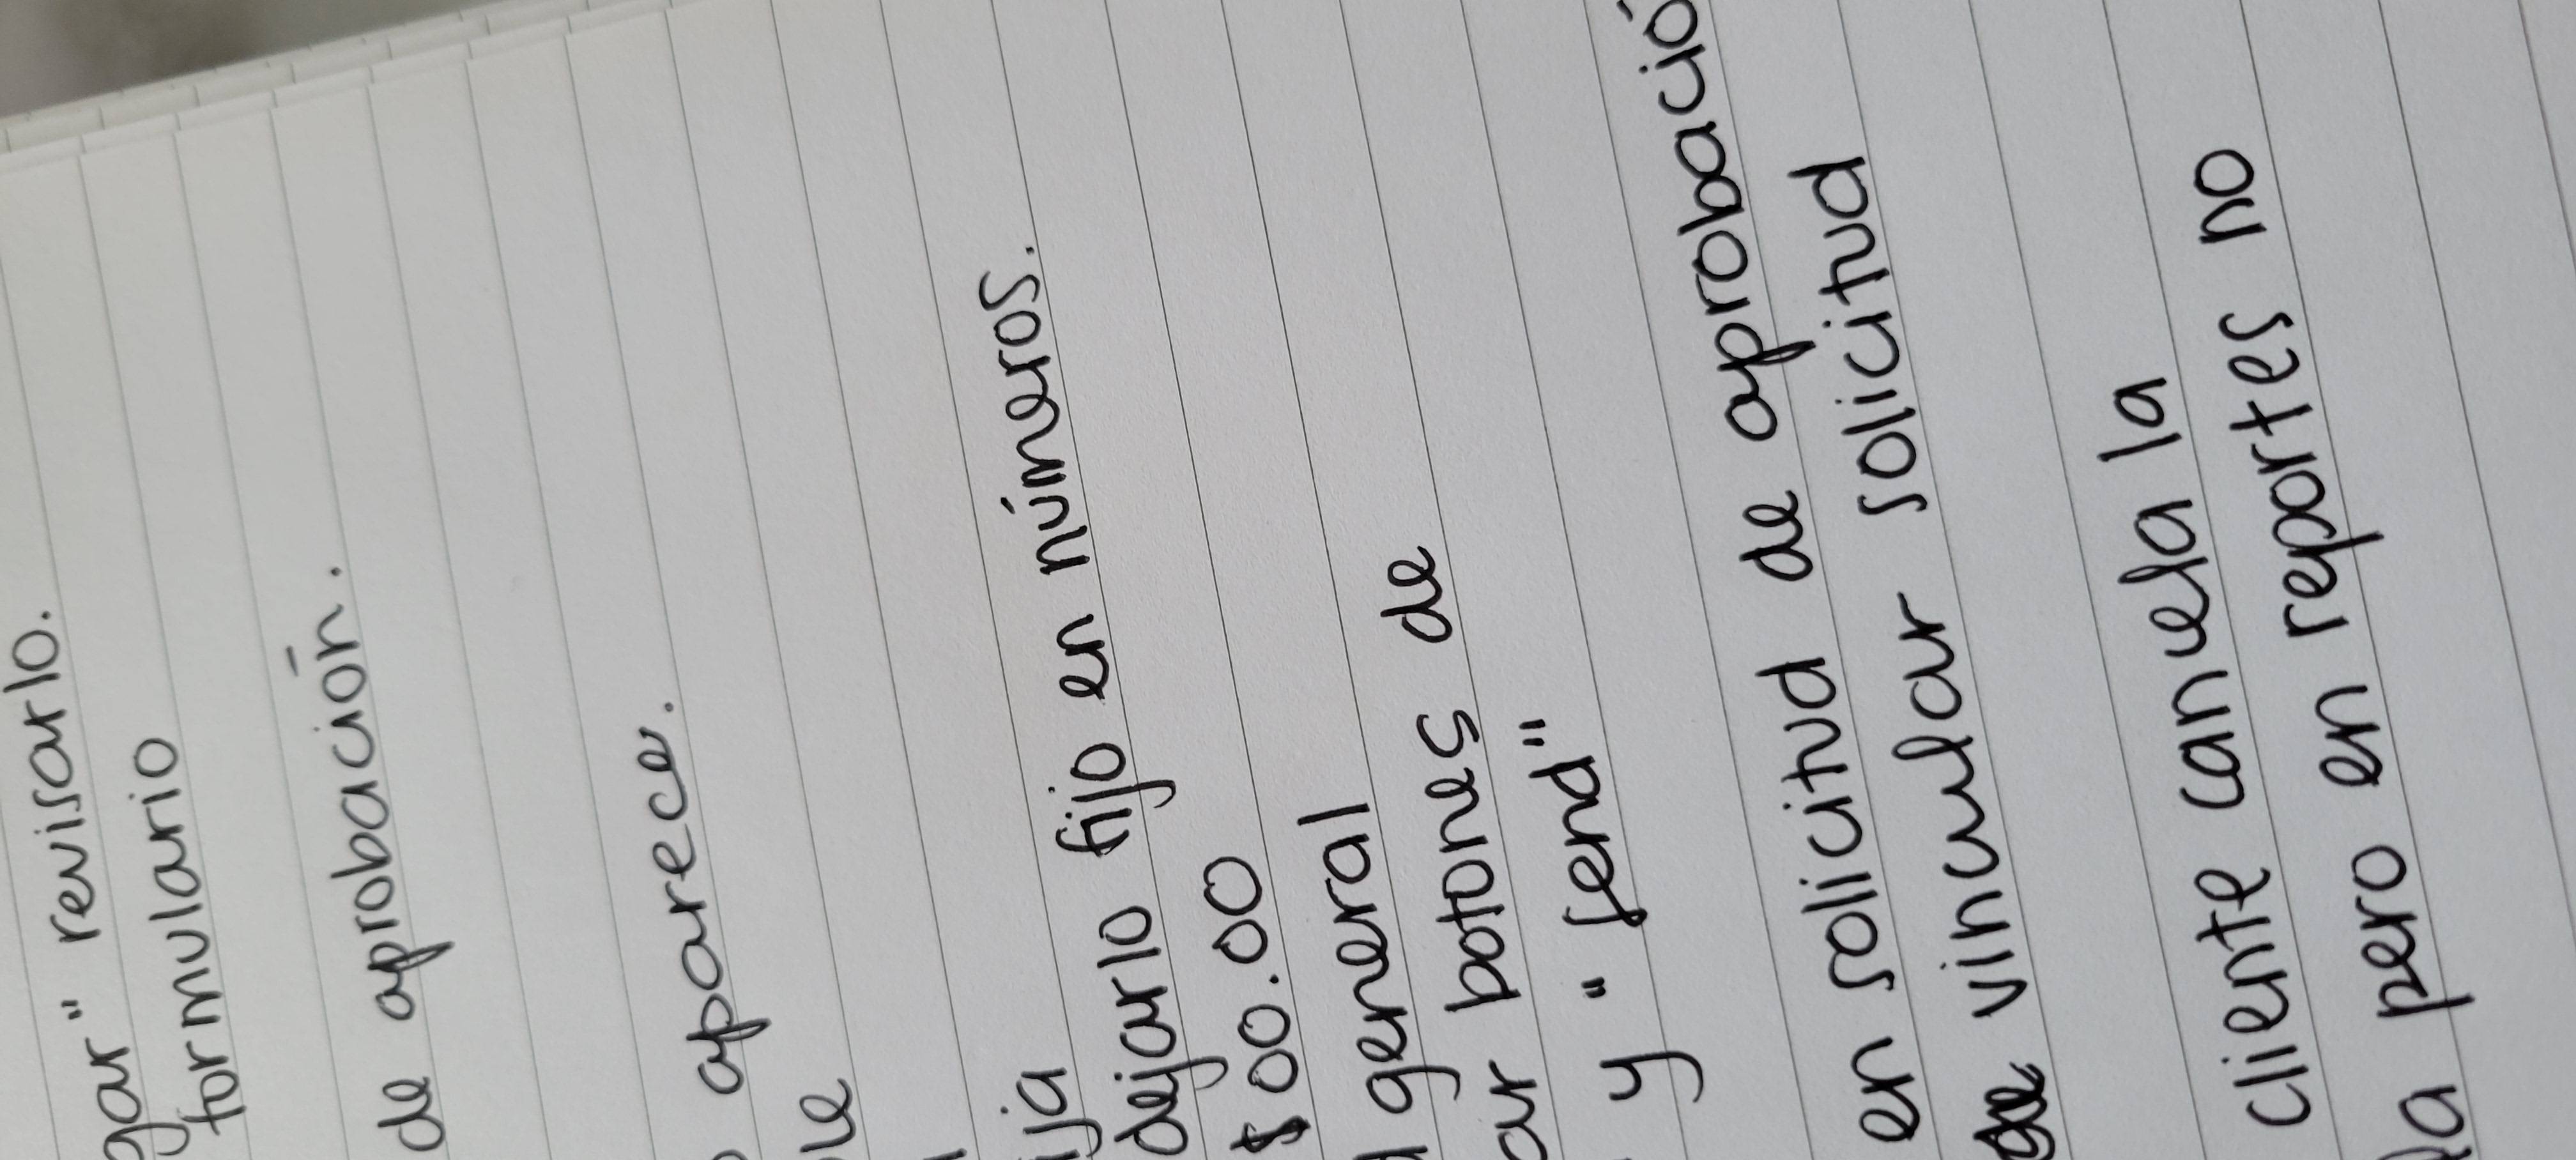 gar" revisarlo.
formulario
de aprobación.
aparece.
ija
dejarlo fijo en números.
$00.00
general
ar botones de
y "Send"
en solicitud de aprobació
vincular solicitud
cliente cancela la
la pero en reportes no